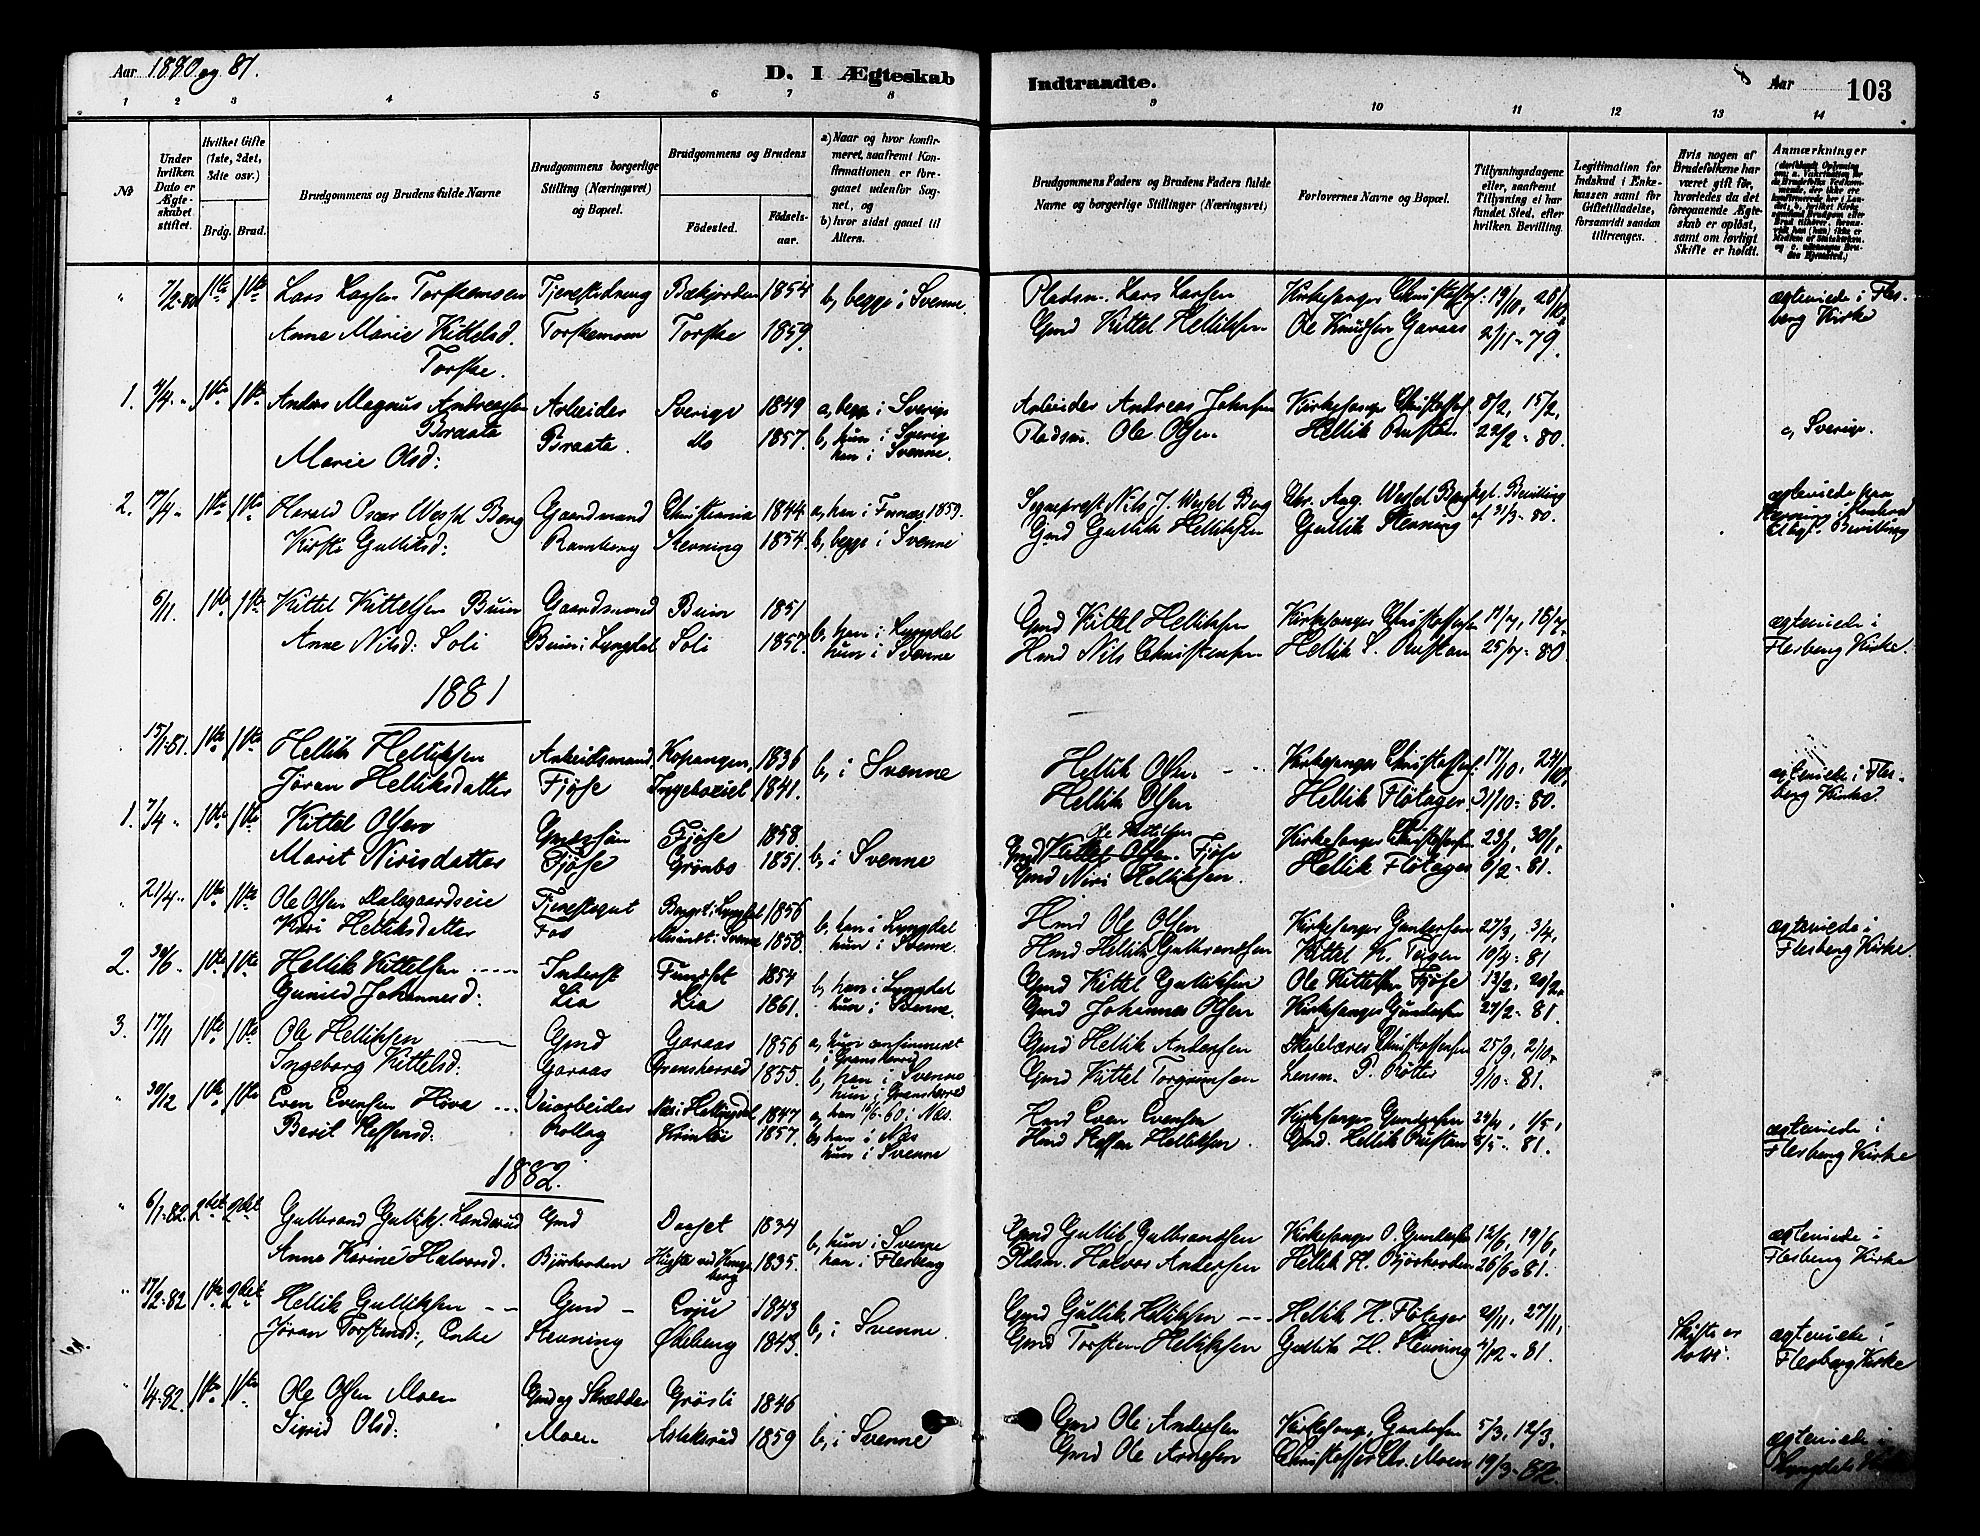 Aar 1880 og 81.
D. I Ægteskab Indtraadte.
Aar 103
1 2 3 4 5 6 7 8 9 10 11 12 13 14
№
Under hvilken Dato er Ægteskabet stiftet.
Hvilket Gifte (1ste, 2det, 3dte osv.)
Brdg. Brud.
Brudgommens og Brudens fulde Navne
Brudgommens borgerlige Stilling (Næringsvei) og Bopæl.
Brudgommens og Brudens
Födested. Födselsaar.
a) Naar og hvor konfirmeret, saafremt Konfirmationen er foregaaet udenfor Sognet, og
b) hvor sidst gaaet til Alters.
Brudgommens Faders og Brudens Faders fulde Navne og borgerlige Stillinger (Næringsvei)
Forlovernes Navne og Bopæl.
Tillysningsdagene eller, saafremt Tillysning ei har fundet Sted, efter hvilken Bevilling.
Legitimation for Indskud i Enkekassen samt for Giftetilladelse, forsaavidt saadan tiltrænges.
Hvis nogen af Brudefolkene har været gift för, hvorledes da det foregaaende Ægteskab er oplöst, samt om lovligt Skifte er holdt.
Anmærkninger
" 7/2-80 1ste 1ste Lars Larsen Torskemoen Tjenestedreng Bækjorden 1854 b, begge i Svenne. Pladsm. Lars Larsen Kirkesanger Christoffers. 19/10, 26/10, ægteviede i Fles-
Anne Marie Kittelsd. Torskemoen Torske 1859. Gmd Kittel Helliksen Ole Knudsen Garaas 2/11-79. berg Kirke
Torske.
1. 4/4 " 1ste 1ste Anders Magnus Andreassen Arbeider Sverige 1849 a, begge i Sverige Arbeider Andreas Johnsen Kirkesanger Christoffers. 8/2, 15/2,
Braata Braata. do 1857. b, hun i Sverige Pladsm. Ole Olsen. Hellik Rustan. 22/2-80. c, Sverige.
Marie Olsd: han i Svenne.
2. 17/4 " 1ste 1ste Harald Oscar Wessel Berg Gaardmand Christiania 1844 a, han i Furnæs 1859. Sognepræst Nils J. Wessel Berg Chr. Aug. Wessel Berg Kgl. Bevilling ægteviede paa
Kirsti Gulliksd: Ramberg Stevning 1854. b, begge i Svenne Gmd Gullik Helliksen Gullik Stevning af 31/3-80. Bevilling
6/11 1ste 1ste Kittel Kittelsen Buin Gaardmand Buin 1851 b, han i Lyngdal Gmd Kittel Helliksen Kirkesanger Christoffersen 11/7, 18/7, ægteviede i
Anne Nilsd: Soli Buin i Lyngdal Soli 1857. hun i Svenne Hmd Nils Christensen Hellik S. Rustan 25/7-80. Flesberg Kirke.
1881
15/1-81. 1ste 1ste Hellik Helliksen Arbeidsmand Kopangen 1836 b, i Svenne Hellik Olsen Kirkesanger Christoffers. 17/10, 24/10, ægteviede i Fles-
Jøran Helliksdatter Fjøse Ingeboriet 1841. Hellik Olsen Hellik Fløtager 31/10-80. berg Kirke.
1. 7/4 " 1ste 1ste Kittel Olsen Gmdssøn Fjøse 1858. b, i Svenne Ole Kittelsen Kirkesanger Christoffersen 23/1, 30/1,
Marit Nirisdatter Fjøse Grønbo 1851. Gmd Kittel Olsen. Fjøse Hellik Fløtager 6/2-81.
Gmd Niri Helliksen.
" 21/4 " 1ste 1ste Ole Olsen Dalegaardseie Tjenestegut Berget i Lyngdal 1856 b, han i Lyngdal Hmd Ole Olsen Kirkesanger Gundersen 27/3, 3/4, ægteviede i
Kari Helliksdatter Fos i Svenne 1858. hun i Svenne. Hmd Hellik Gulbrandsen Kittel K. Teigen 10/4-81 Flesberg Kirke.
2. 30/6 " 1ste 1ste Hellik Kittelsen Inderst Fundset 1854 b, han i Lyngdal Gmd Kittel Gulliksen Ole Kittelsen Fjøse 13/2, 20/2,
Gunild Johannesd: Lia Lia 1861. hun i Svenne. Gmd Johannes Olsen Kirkesanger Gundersen 27/2-81.
3. 17/11 1ste 1ste Ole Helliksen Gmd Garaas 1856 a, hun confirmeret i Gransherred Gmd Hellik Andersen Skolelærer Christoffersen 25/9, 2/10,
Ingeborg Kittelsd: Garaas Gransherred 1855. b, han i Svenne hun i Gransherred Gmd Kittel Torgrimsen Lensm. P. Røtter 9/10-81.
" 30/12 1ste 1ste Even Evensen Hova Veiarbeider Næs i Hallingdal 1847 a, han 16/6-60 i Næs. Hmd Even Evensen Kirkesanger Gundersen 24/4, 1/5, ægteviede i
Berit Steffensd: Rollag 1857. b, han i Næs hun i Svenne Hmd Steffen Helliksen. Gmd. Hellik Rustan 8/5-81. Flesberg Kirke
1882.
" 6/1-82. 2det 2det Gulbrand Gulliks. Landerud Gmd Daaset 1834 b, hun i Svenne Gmd Gullik Gulbrandsen Kirkesanger O. Gundersen 12/6, 19/6, ægteviede i
Anne Karine Halvorsd. Bjørkorden ved Kongsberg 1835. han i Flesberg Pldsm. Halvor Andersen Hellik H. Bjørkorden 26/6-81. Flesberg Kirke
" 17/2-82 1ste 2det Hellik Gulliksen Gmd Evju 1843 b, i Svenne. Gmd Gullik Helliksen Hellik H. Fløtager 20/11, 27/11, Skifte er ægteviede i
Jøran Torstensd:, Enke Stevning Ødeberg 1843. Gmd Torsten Helliksen Gullik H. Stevning 4/12-81. holdt. Flesberg Kirke
" 1/4-82. 1ste 1ste Ole Olsen Moen Gmd og Skrædder Grøsli 1846 b, i Svenne Gmd Ole Andersen Kirkesang. Gundersen 5/3, 12/3, ægteviede i
Sigrid Olsd: Moen Aslekrud 1859 Gmd Ole Arnesen Christoffer Chr. Moen 19/3-82. Lyngdals Kirke